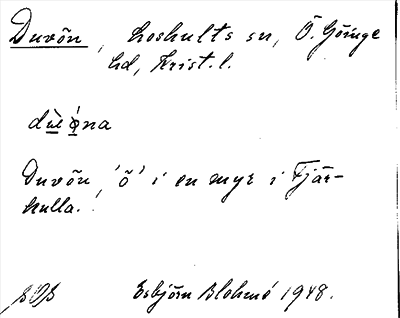 Duvön, Loshults sn, Ö. Göinge
hd, Krist. l.
Duvön, 'ö' i en myr i Fjär-
hulla.
Esbjörn Blohmé 1948.